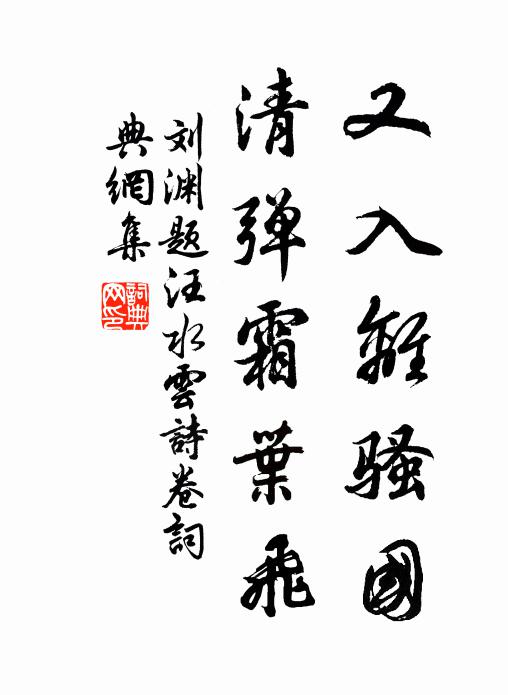 又入離骚國
清弹霜葉飛
刘渊题汪水雲詩卷詞
典網集
詞典網印